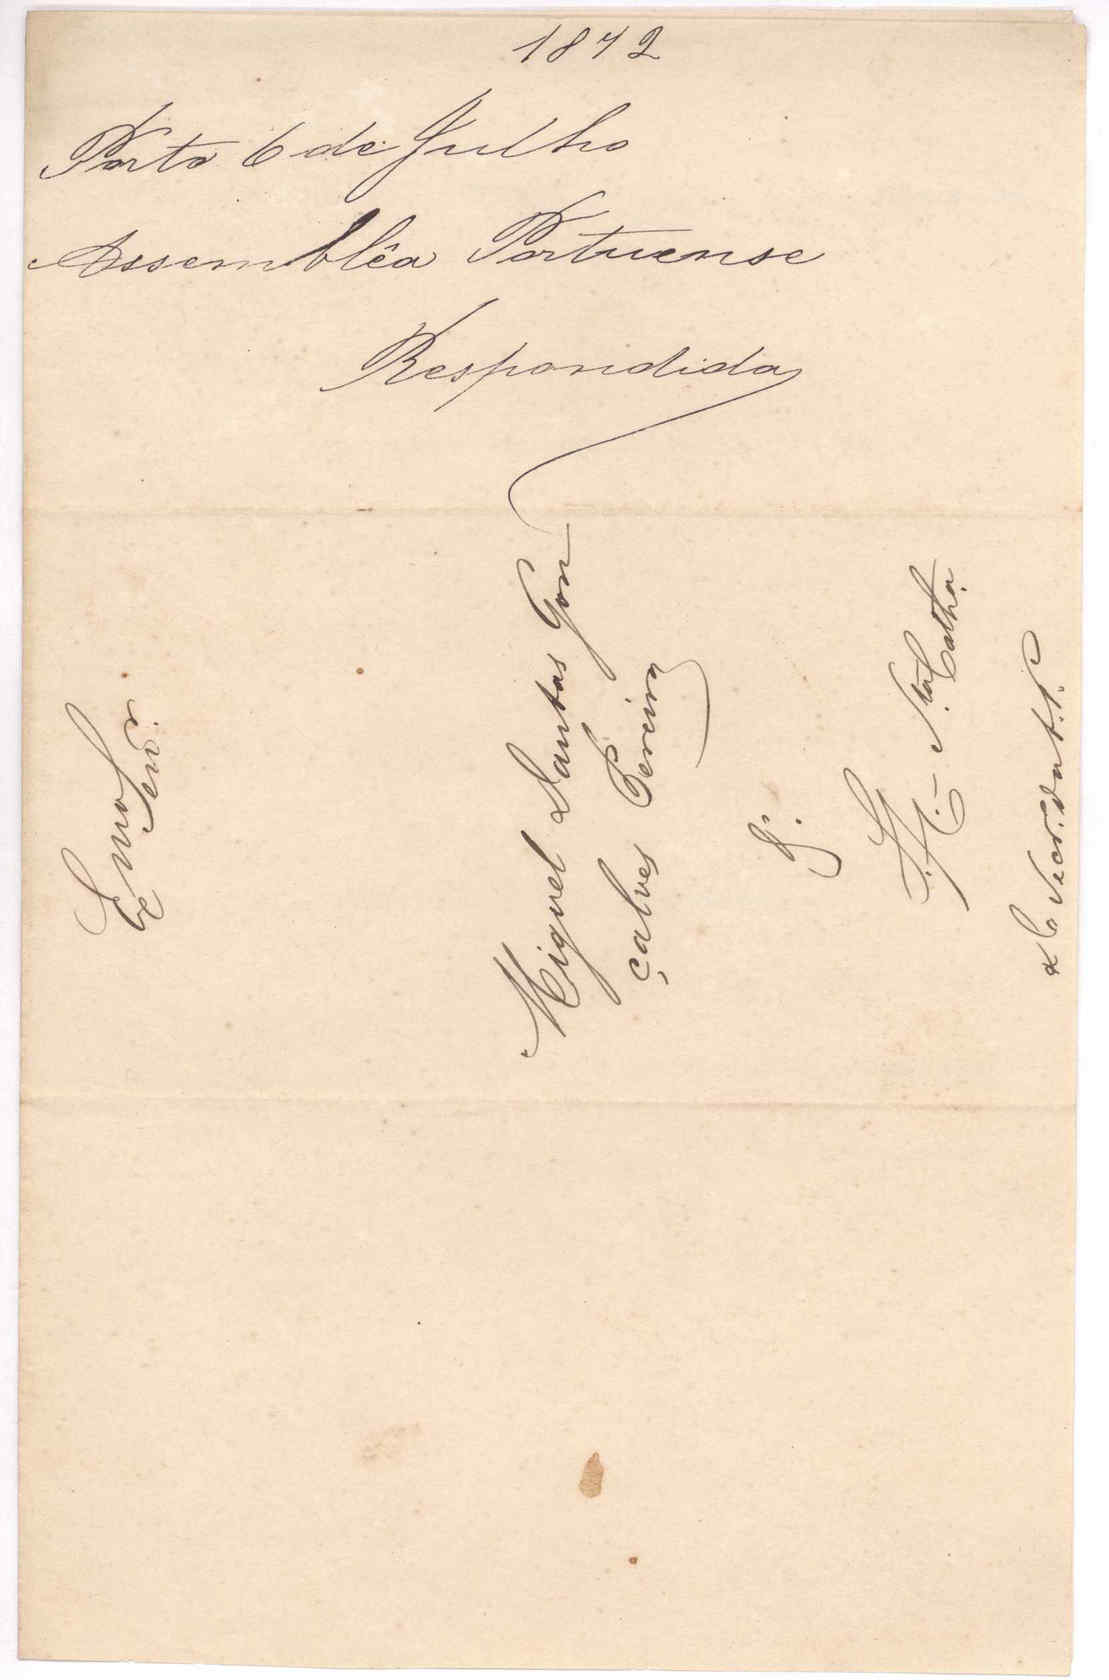 1872
Porto 6 de Julho
Assemblêa Portuense
Respondida
Exmo Senr.
Miguel Dantas Gon
çalves Pereira
S.
Sta Catha.
Secr. da A. P.